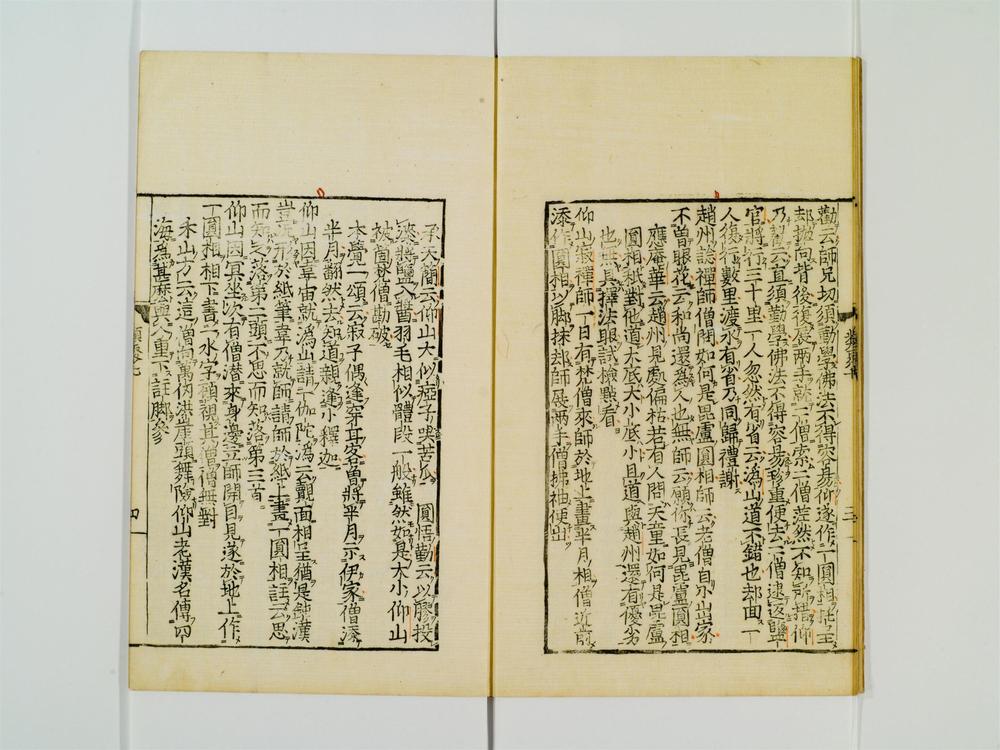 勸云師兄切須勤學佛法不得容易仰遂作一圓相托呈
却抛向背後復展兩手就二僧索二僧茫然不知所措仰
乃勸云直須勤學佛法不得容易珍重便去二僧逮返
官將行三十里一人忽然有省云溈山道不錯也却回一
人復行數里渡水有省乃同歸禮謝
趙州諗禪師僧問如何是毘盧圓相師云老僧自小出家
不曾眼花云和尚還爲人也無師云願你長見毘盧圓相
應庵華云趙州見處偏枯若有人問天童如何是毘盧
圓相秖對他道大底大小底小且道與趙州還有優劣
也無具擇法眼試檢點看
仰山寂禪師一日有梵僧來師於地上畫半月相僧近前
添作圓相以脚抹却師展兩手僧拂袖便出
承天簡云仰山大似瘂子喫苦瓜 圓悟勤云以膠投
漆將鹽入醬羽毛相似體段一般雖然如是大小仰山
被箇胡僧勘破
本覺一頌云寂子偶逢穿耳客曾將半月示伊家僧添
半月翻然去知道親逢小釋迦
仰山因韋宙就溈山請一伽陀溈云覿面相呈猶是鈍漢
豈況形於紙筆韋乃就師請師於紙上畫一圓相註云思
而知之落第二頭不思而知落第三首
仰山因冥坐次有僧潛來身邊立師開目見遂於地上作
一圓相相下書一水字顧視其僧僧無對
禾山方云這僧向萬仞洪崖頭舞險仰山老漢名傳四
海爲甚麽與人重下註脚參
四